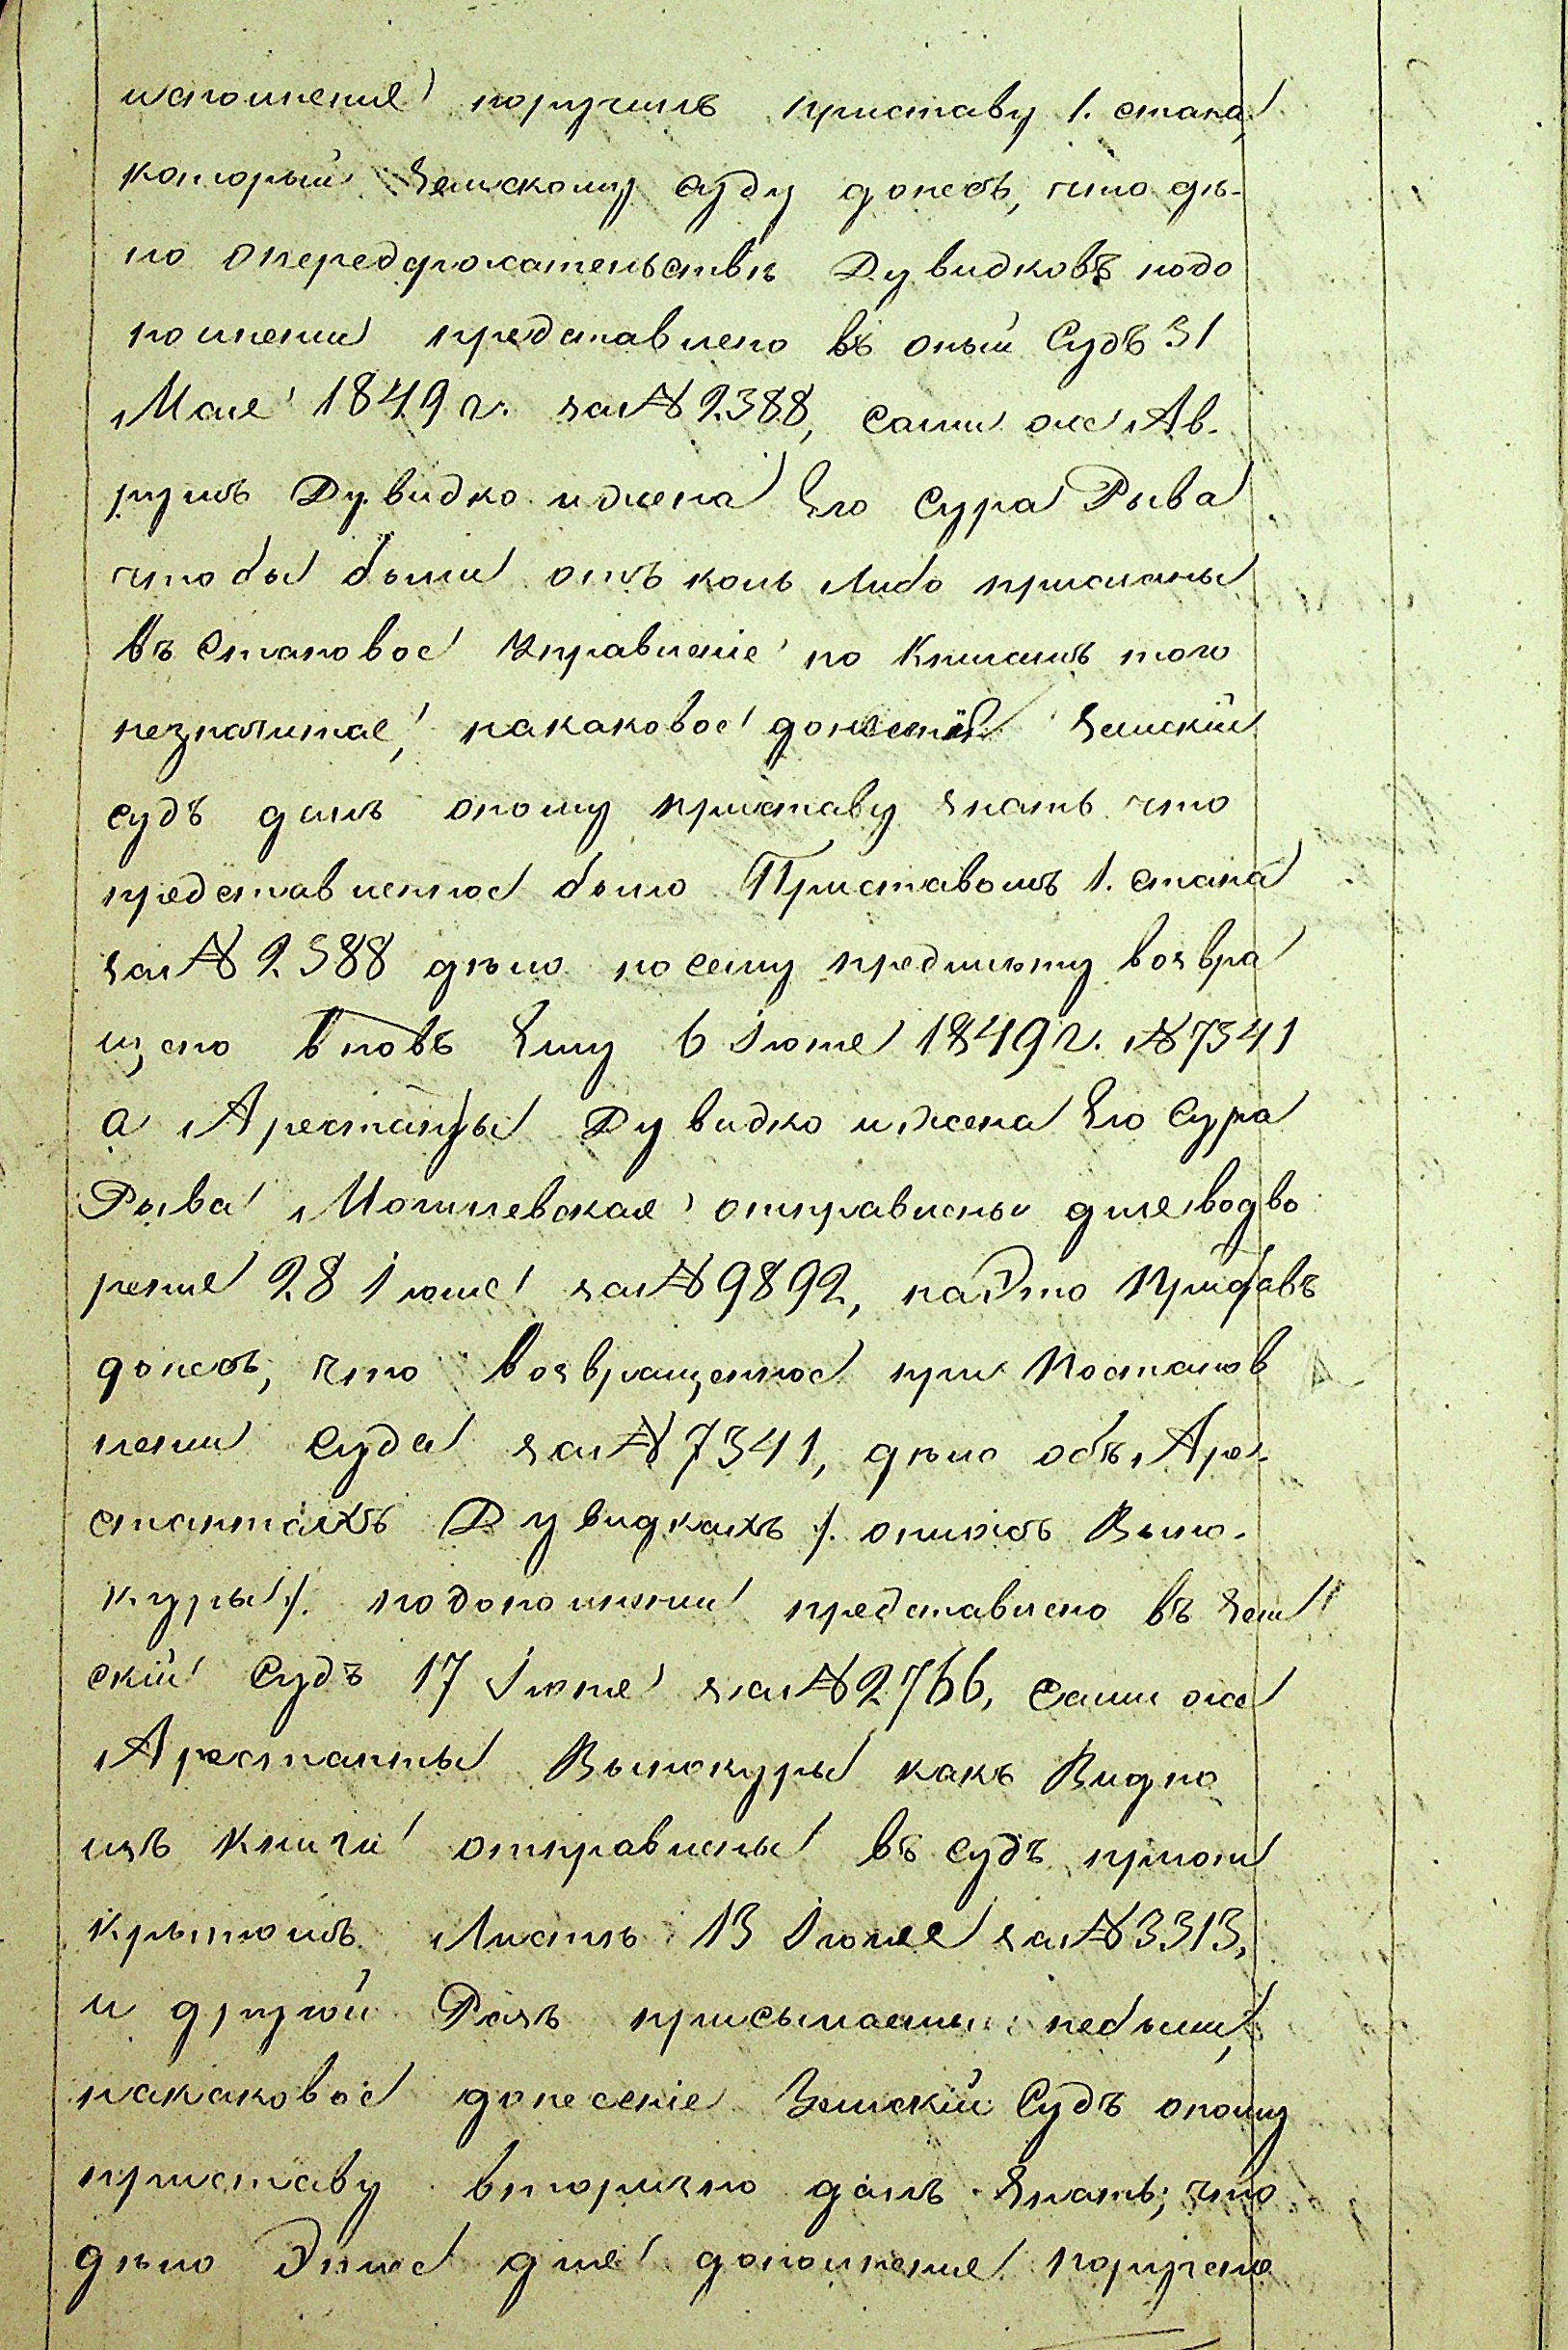 исполненія поручилъ приставу 1. стана,
который Земскому суду донесъ, что дѣ-
ло опередержательствѣ Дувидковъ подо
полненіи представлено въ оный Судъ 31
Мая 1849 г. за № 2388, сами же Ав-
румъ Дувидко и жена Его Сура Рыва
чтобы были отъ коль либо присланы
въ Становое Управленіе по Книгамъ того
незначится, накаковое донесеніе Земскій
судъ далъ оному приставу знать что
представленное было Приставомъ 1. стана
за № 2388 дѣло по сему предмѣту возвра
щено вновь Ему 6 Іюня 1849 г. № 7341
а Арестанты Дувидко и жена Его Сура
Рыва Могилевская отправлены для водво
ренія 28 Іюля за № 9892, на Это Приставъ
донесъ, что возвращенное при Постанов
леніи Суда за № 7341, дѣло объ Аре-
стантахъ Дувидкахъ /. онижъ Выно-
куры /. подополненіи представлено въ Зем
скій Судъ 17 Іюня за № 2766, сами же
Арестанты Вынокуры какъ Видно
изъ Книги отправлены въ судъ приот
крытомъ Листѣ 13 Іюля за № 3313,
и другой Разъ присылаемы небыли,
накаковое донесеніе Земскій Судъ оному
приставу вторично далъ Знать, что
дѣло Это для дополненія поручено